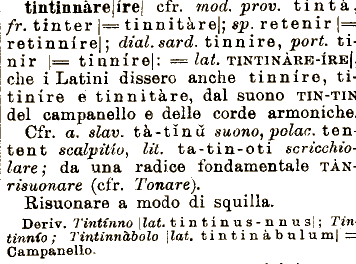 tintinnàre|íre| cfr. mod. prov. tintá,
fr. tinter |= tinnitàre|; sp. retenir |=
retinníre|; dial. sard. tinnire, port. ti-
nir |= tinníre|: = lat. TINTINÀRE-ÍRE|,
che i Latini dissero anche tinníre, ti-
tiníre e tinnitàre, dal suono TIN-TIN
del campanello e delle corde armoniche.
Cfr. a. slav. tà-tĭnŭ suono, polac. ten-
tent scalpitío, lit. ta-tin-oti scricchio-
lare; da una radice fondamentale TÀN-
risuonare (cfr. Tonare).
Risuonare a modo di squilla.
Deriv. Tintínno |lat. tintinus-nnus|; Tin-
tinnío; Tintinnàbolo |lat. tintinàbulum| =
Campanello.